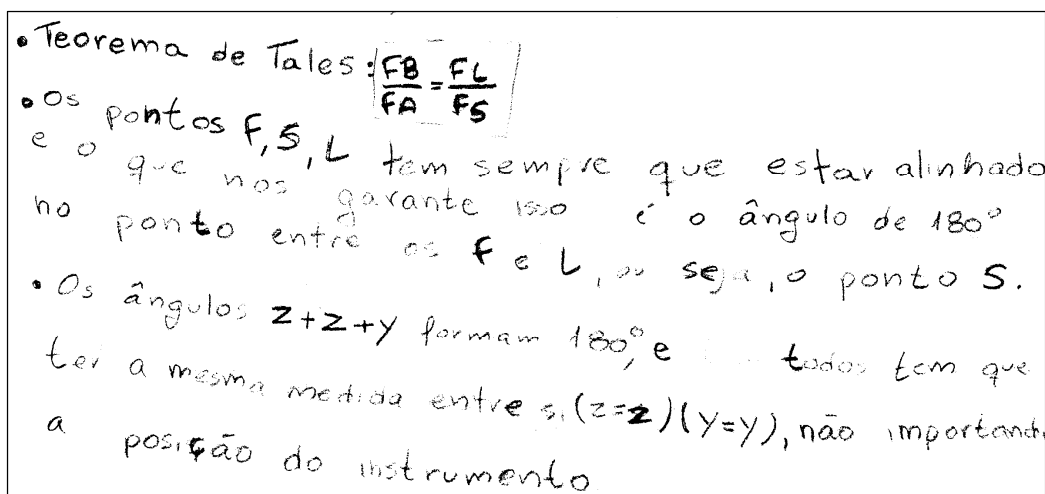 • Teorema de Tales: FB/FA = FL/FS
• Os pontos F, S, L tem sempre que estar alinhado
e o que nos garante isso é o ângulo de 180°
no ponto entre os F e L, ou seja, o ponto S.
• Os ângulos z+z+y formam 180°, e todos tem que
ter a mesma medida entre si (z=z)(y=y), não importand
a posição do instrumento